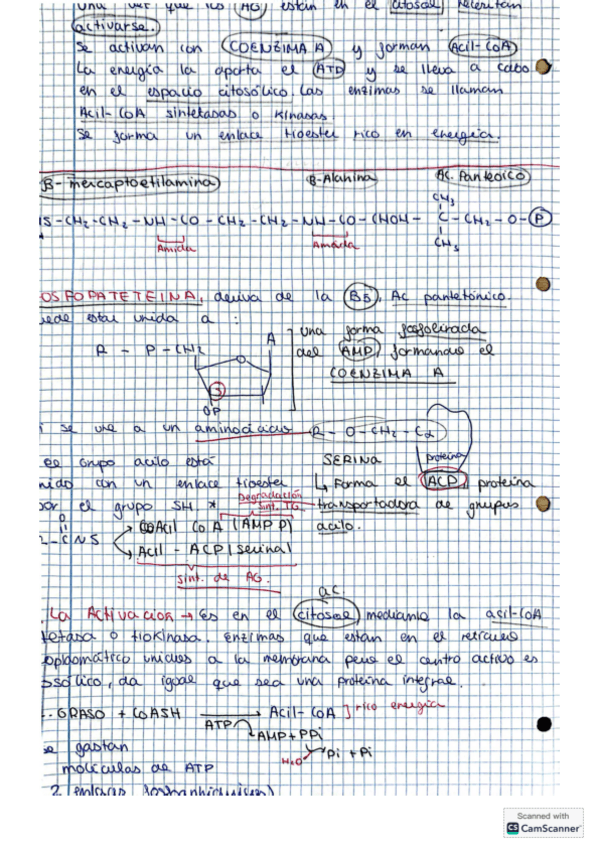 una vez que los AG están en el citosol necesitan
activarse.
Se activan con COENZIMA A y forman Acil-CoA
La energía la aporta el ATP y se lleva a cabo
en el espacio citosólico las enzimas se llaman
Acil-CoA sintetasas o kinasas.
Se forma un enlace tioester rico en energía.
B-mercaptoetilamina B-Alanina Ac. Panteoico
HS-CH2-CH2-NH-CO-CH2-CH2-NH-CO-CHOH-C-CH2-O-P
CH3
CH3
Amida Amida
OSFOPATETEINA, deriva de la B5, Ac pantetónico.
uede estar unida a :
una forma fosforilada
del AMP, formando el
COENZIMA A
R - P - CH2 O A
3
OP
si se une a un aminoácido R-O-CH2-Cα
SERINA proteína
el Grupo acilo está
nido con un enlace tioester
por el grupo SH. *
↳ Forma el ACP, proteína
transportadora de grupos
acilo.
Degradación
Sint. TG.
Acil CoA (AMP P)
Acil - ACP (serina)
Sint. de AG.
ac.
La Activación → Es en el citosol mediante la acil-CoA
tetasa o tiokinasa. Enzimas que están en el retículo
oplasmático unidas a la membrana pero el centro activo es
osólico, da igual que sea una proteína integral.
GRASO + CoASH → Acil-CoA ] rico energía
ATP AMP+PPi
H2O Pi + Pi
se gastan
moléculas de ATP
2 enlaces
Scanned with
CS CamScanner